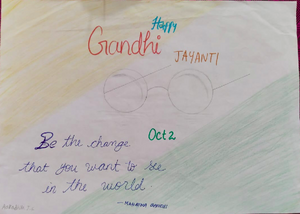 Happy
Gandhi
JAYANTI
Be the change
Oct 2
that you want to see
in the world
--- MAHATMA GANDHI